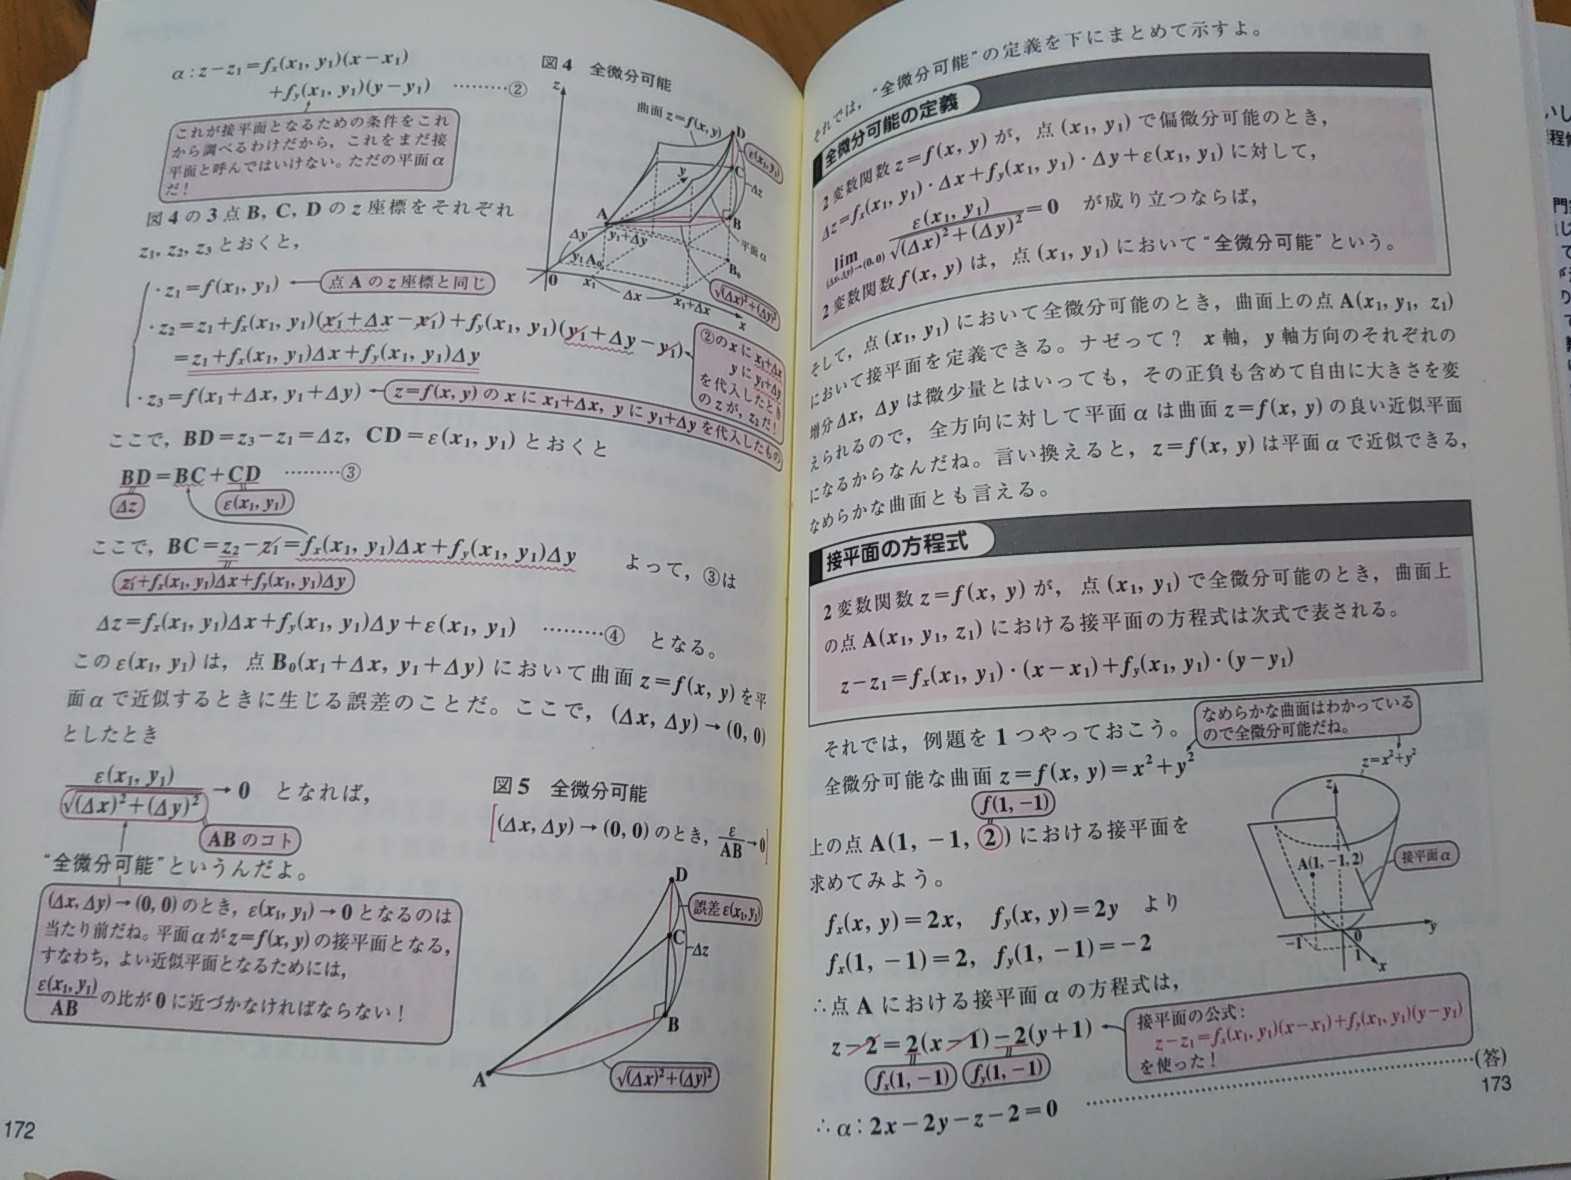 α : z－z₁＝fₓ(x₁, y₁)(x－x₁)
＋f_y(x₁, y₁)(y－y₁) ………②
これが接平面となるための条件をこれ
から調べるわけだから，これをまだ接
平面と呼んではいけない。ただの平面α
だ！
図4の3点B, C, Dのz座標をそれぞれ
z₁, z₂, z₃とおくと，
・z₁＝f(x₁, y₁) ← 点Aのz座標と同じ
・z₂＝z₁＋fₓ(x₁, y₁)(x₁＋Δx－x₁)＋f_y(x₁, y₁)(y₁＋Δy－y₁)
＝z₁＋fₓ(x₁, y₁)Δx＋f_y(x₁, y₁)Δy
②のxにx₁＋Δx
yにy₁＋Δy
を代入したとき
のzが，z₂だ！
・z₃＝f(x₁＋Δx, y₁＋Δy) ← z＝f(x, y)のxにx₁＋Δx, yにy₁＋Δyを代入したもの
図4 全微分可能
z
曲面z＝f(x, y)
D
ε(x₁, y₁)
C
Δz
y
A
B
Δy
y₁＋Δy
平面α
y₁
A₀
B₀
0
x₁
Δx
x₁＋Δx
x
√(Δx)²＋(Δy)²
ここで，BD＝z₃－z₁＝Δz, CD＝ε(x₁, y₁)とおくと
BD＝BC＋CD ………③
Δz
ε(x₁, y₁)
ここで，BC＝z₂－z₁＝fₓ(x₁, y₁)Δx＋f_y(x₁, y₁)Δy よって，③は
z₁＋fₓ(x₁, y₁)Δx＋f_y(x₁, y₁)Δy
Δz＝fₓ(x₁, y₁)Δx＋f_y(x₁, y₁)Δy＋ε(x₁, y₁) ………④ となる。
このε(x₁, y₁)は，点B₀(x₁＋Δx, y₁＋Δy)において曲面z＝f(x, y)を平
面αで近似するときに生じる誤差のことだ。ここで，(Δx, Δy)→(0, 0)
としたとき
ε(x₁, y₁)/√(Δx)²＋(Δy)² →0 となれば，
ABのコト
“全微分可能”というんだよ。
(Δx, Δy)→(0, 0)のとき，ε(x₁, y₁)→0となるのは
当たり前だね。平面αがz＝f(x, y)の接平面となる，
すなわち，よい近似平面となるためには，
ε(x₁, y₁)/ABの比が0に近づかなければならない！
図5 全微分可能
[(Δx, Δy)→(0, 0)のとき，ε/AB→0]
D
誤差ε(x₁, y₁)
C
Δz
B
A
√(Δx)²＋(Δy)²
172
それでは，“全微分可能”の定義を下にまとめて示すよ。
全微分可能の定義
2変数関数z＝f(x, y)が，点(x₁, y₁)で偏微分可能のとき，
Δz＝fₓ(x₁, y₁)・Δx＋f_y(x₁, y₁)・Δy＋ε(x₁, y₁)に対して，
lim (Δx, Δy)→(0, 0) ε(x₁, y₁)/√(Δx)²＋(Δy)²＝0 が成り立つならば，
2変数関数f(x, y)は，点(x₁, y₁)において“全微分可能”という。
そして，点(x₁, y₁)において全微分可能のとき，曲面上の点A(x₁, y₁, z₁)
において接平面を定義できる。ナゼって？ x軸，y軸方向のそれぞれの
増分Δx, Δyは微少量とはいっても，その正負も含めて自由に大きさを変
えられるので，全方向に対して平面αは曲面z＝f(x, y)の良い近似平面
になるからなんだね。言い換えると，z＝f(x, y)は平面αで近似できる，
なめらかな曲面とも言える。
接平面の方程式
2変数関数z＝f(x, y)が，点(x₁, y₁)で全微分可能のとき，曲面上
の点A(x₁, y₁, z₁)における接平面の方程式は次式で表される。
z－z₁＝fₓ(x₁, y₁)・(x－x₁)＋f_y(x₁, y₁)・(y－y₁)
それでは，例題を1つやっておこう。
なめらかな曲面はわかっている
ので全微分可能だね。
全微分可能な曲面z＝f(x, y)＝x²＋y²
f(1, －1)
上の点A(1, －1, 2)における接平面を
求めてみよう。
fₓ(x, y)＝2x, f_y(x, y)＝2y より
fₓ(1, －1)＝2, f_y(1, －1)＝－2
∴点Aにおける接平面αの方程式は，
z－2＝2(x－1)－2(y＋1)
fₓ(1, －1)
f_y(1, －1)
接平面の公式：
z－z₁＝fₓ(x₁, y₁)(x－x₁)＋f_y(x₁, y₁)(y－y₁)
を使った！
∴α：2x－2y－z－2＝0 ………(答)
z
z＝x²＋y²
A(1, －1, 2)
接平面α
y
－1
0
1
x
173